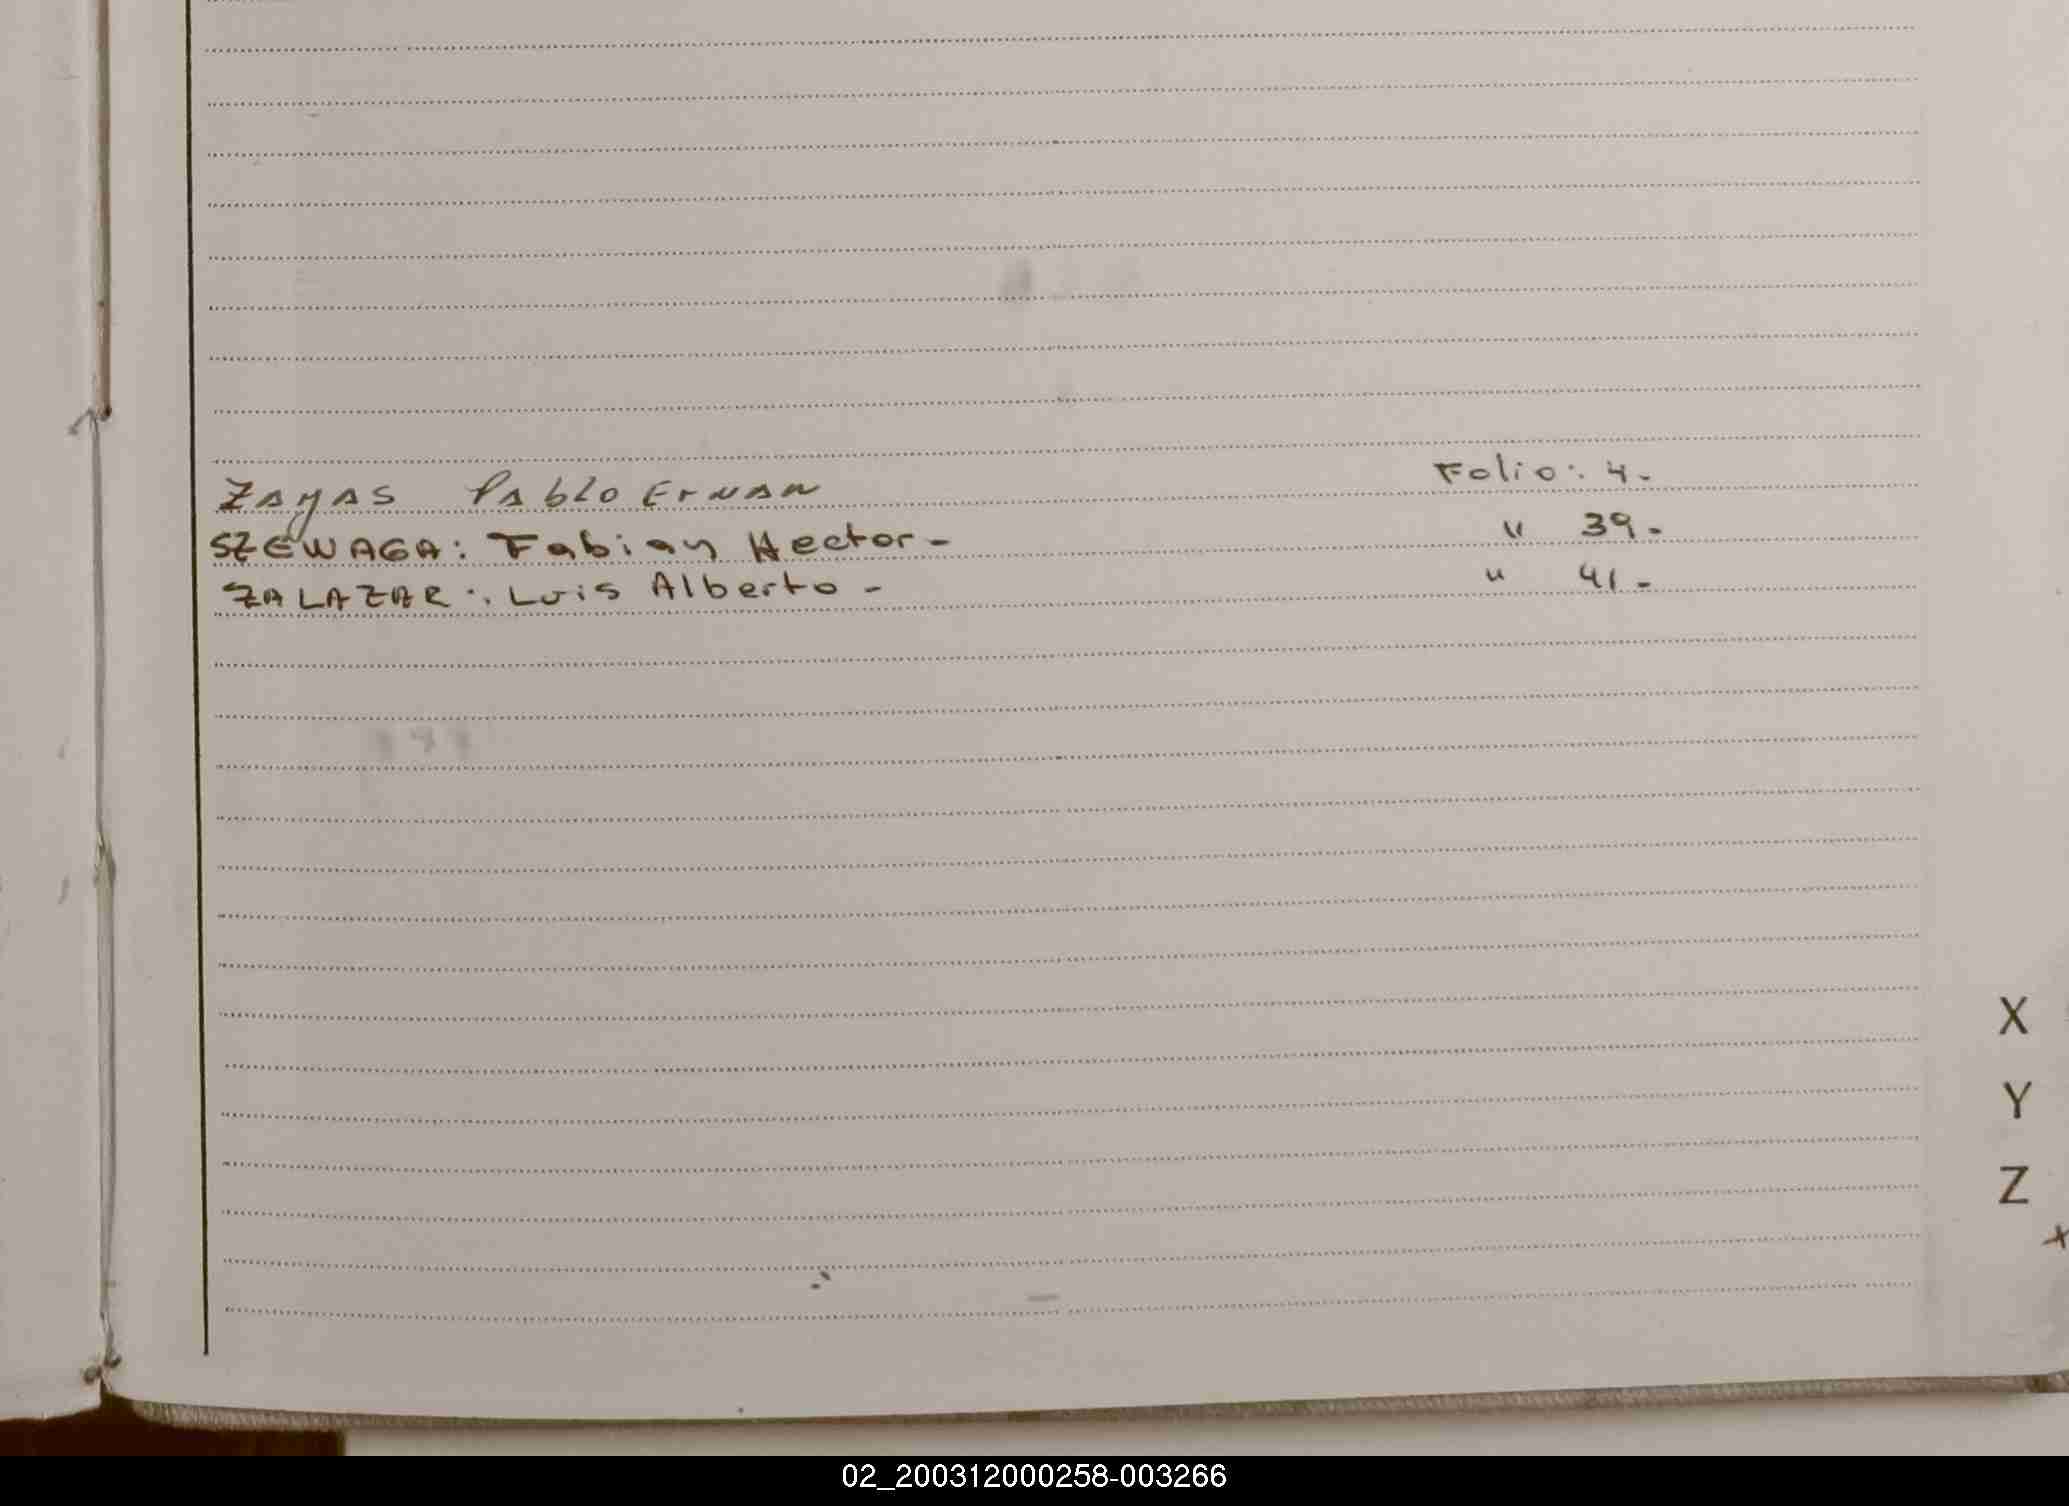 ZAYAS PAblo ErNAN Folio: 4.
SZEWAGA: Fabian Hector- " 39-
ZALAZAR: Luis Alberto- " 41-
X
Y
Z
02_200312000258-003266